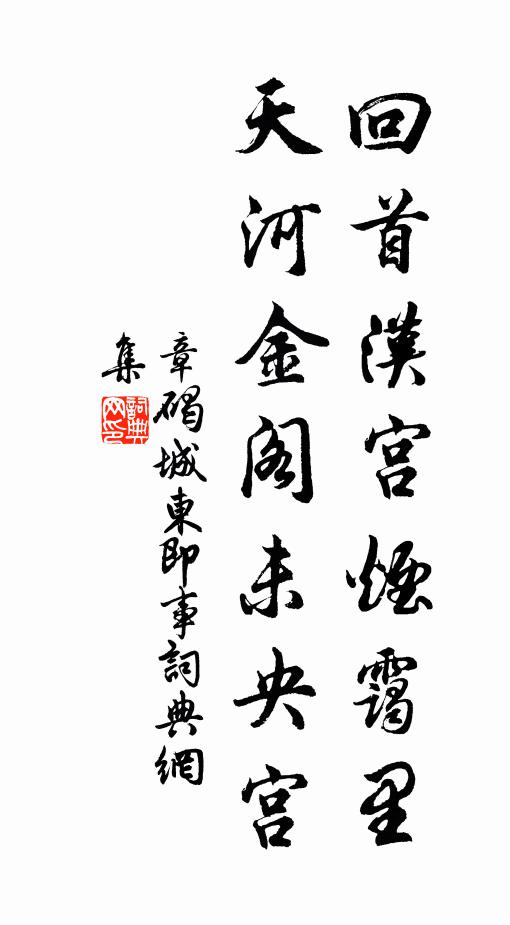 回首漢宫煙靄里
天河金阁未央宫
章碣城東即事詞典網
集
詞典网印